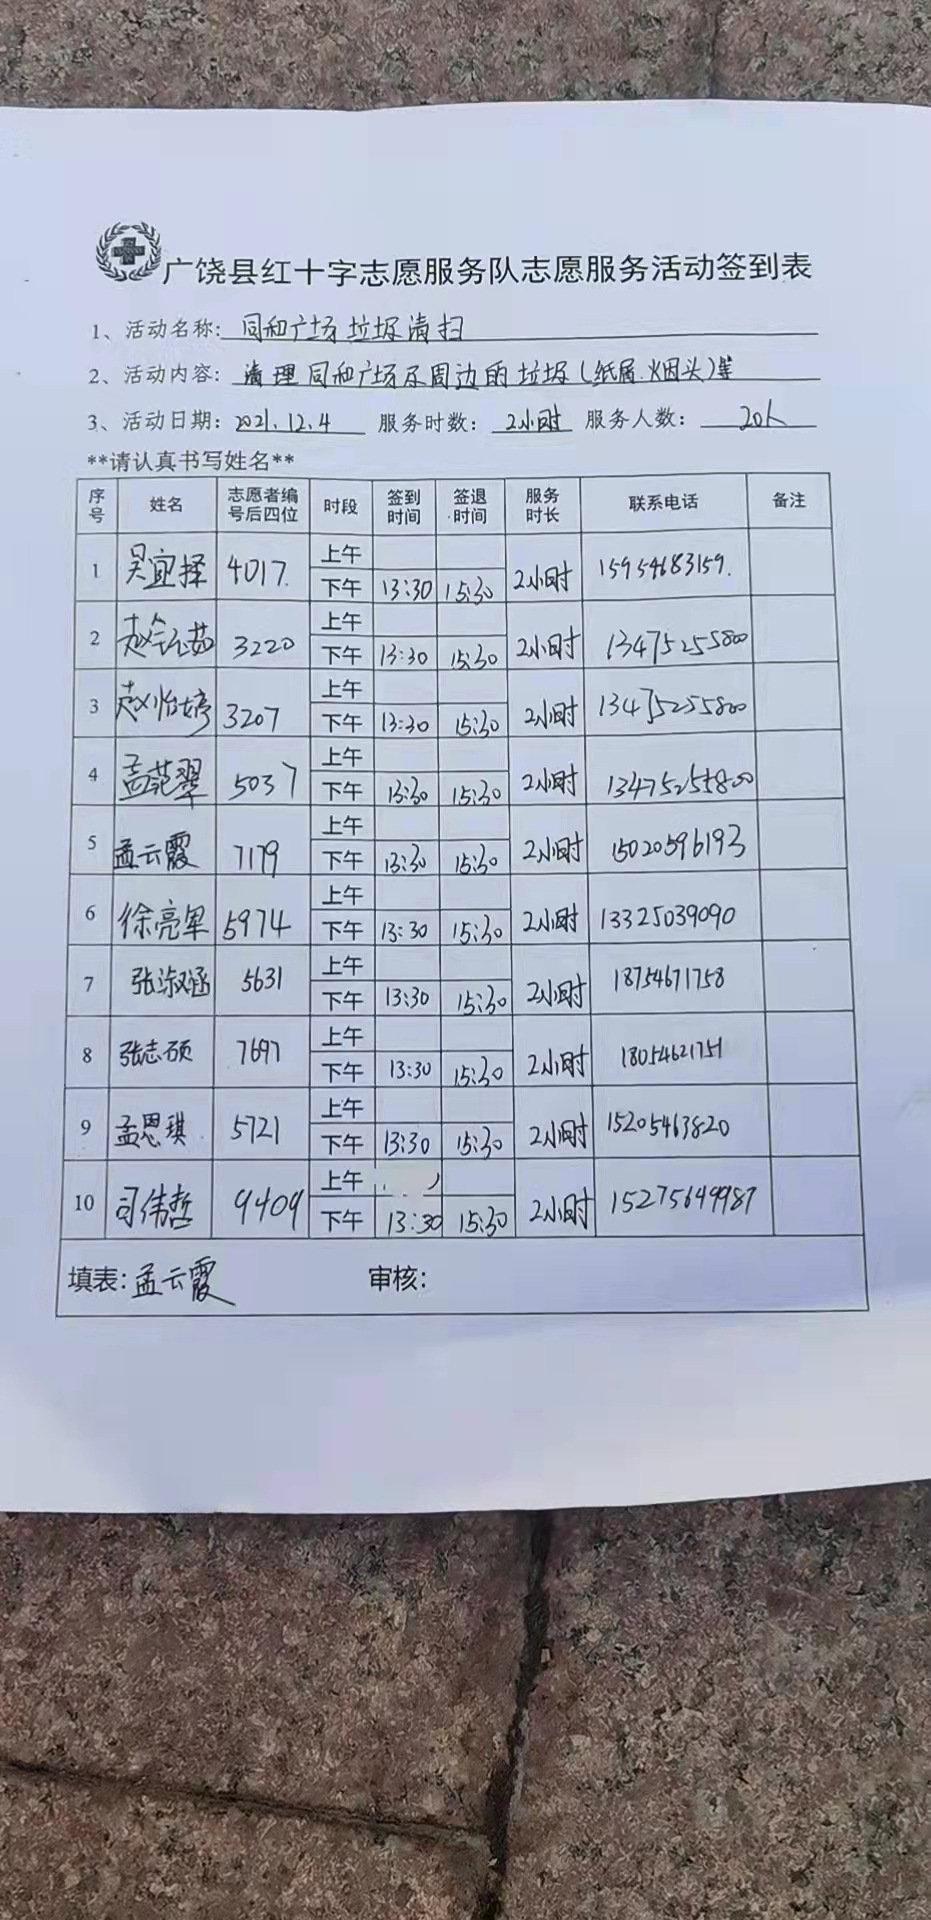 广饶县红十字志愿服务队志愿服务活动签到表
1、活动名称: 同和广场垃圾清扫
2、活动内容: 清理同和广场及周边的垃圾(纸屑.烟头)等
3、活动日期: 2021.12.4 服务时数: 2小时 服务人数: 20人
**请认真书写姓名**
序号 姓名 志愿者编号后四位 时段 签到时间 签退时间 服务时长 联系电话 备注
1 吴宜择 4017. 上午 下午 13:30 15:30 2小时 15954683159.
2 3220 上午 下午 13:30 15:30 2小时 13475255800
3 赵怡婷 3207 上午 下午 13:30 15:30 2小时 13475255800
4 孟范翠 5037 上午 下午 13:30 15:30 2小时 13475255800
5 孟云霞 7179 上午 下午 13:30 15:30 2小时 15020596193
6 徐亮军 5974 上午 下午 13:30 15:30 2小时 13325039090
7 张淑涵 5631 上午 下午 13:30 15:30 2小时 18754671758
8 张志硕 7697 上午 下午 13:30 15:30 2小时 18054621751
9 孟思琪 5721 上午 下午 13:30 15:30 2小时 15205463820
10 司伟哲 9409 上午 下午 13:30 15:30 2小时 15275649987
填表: 孟云霞 审核: